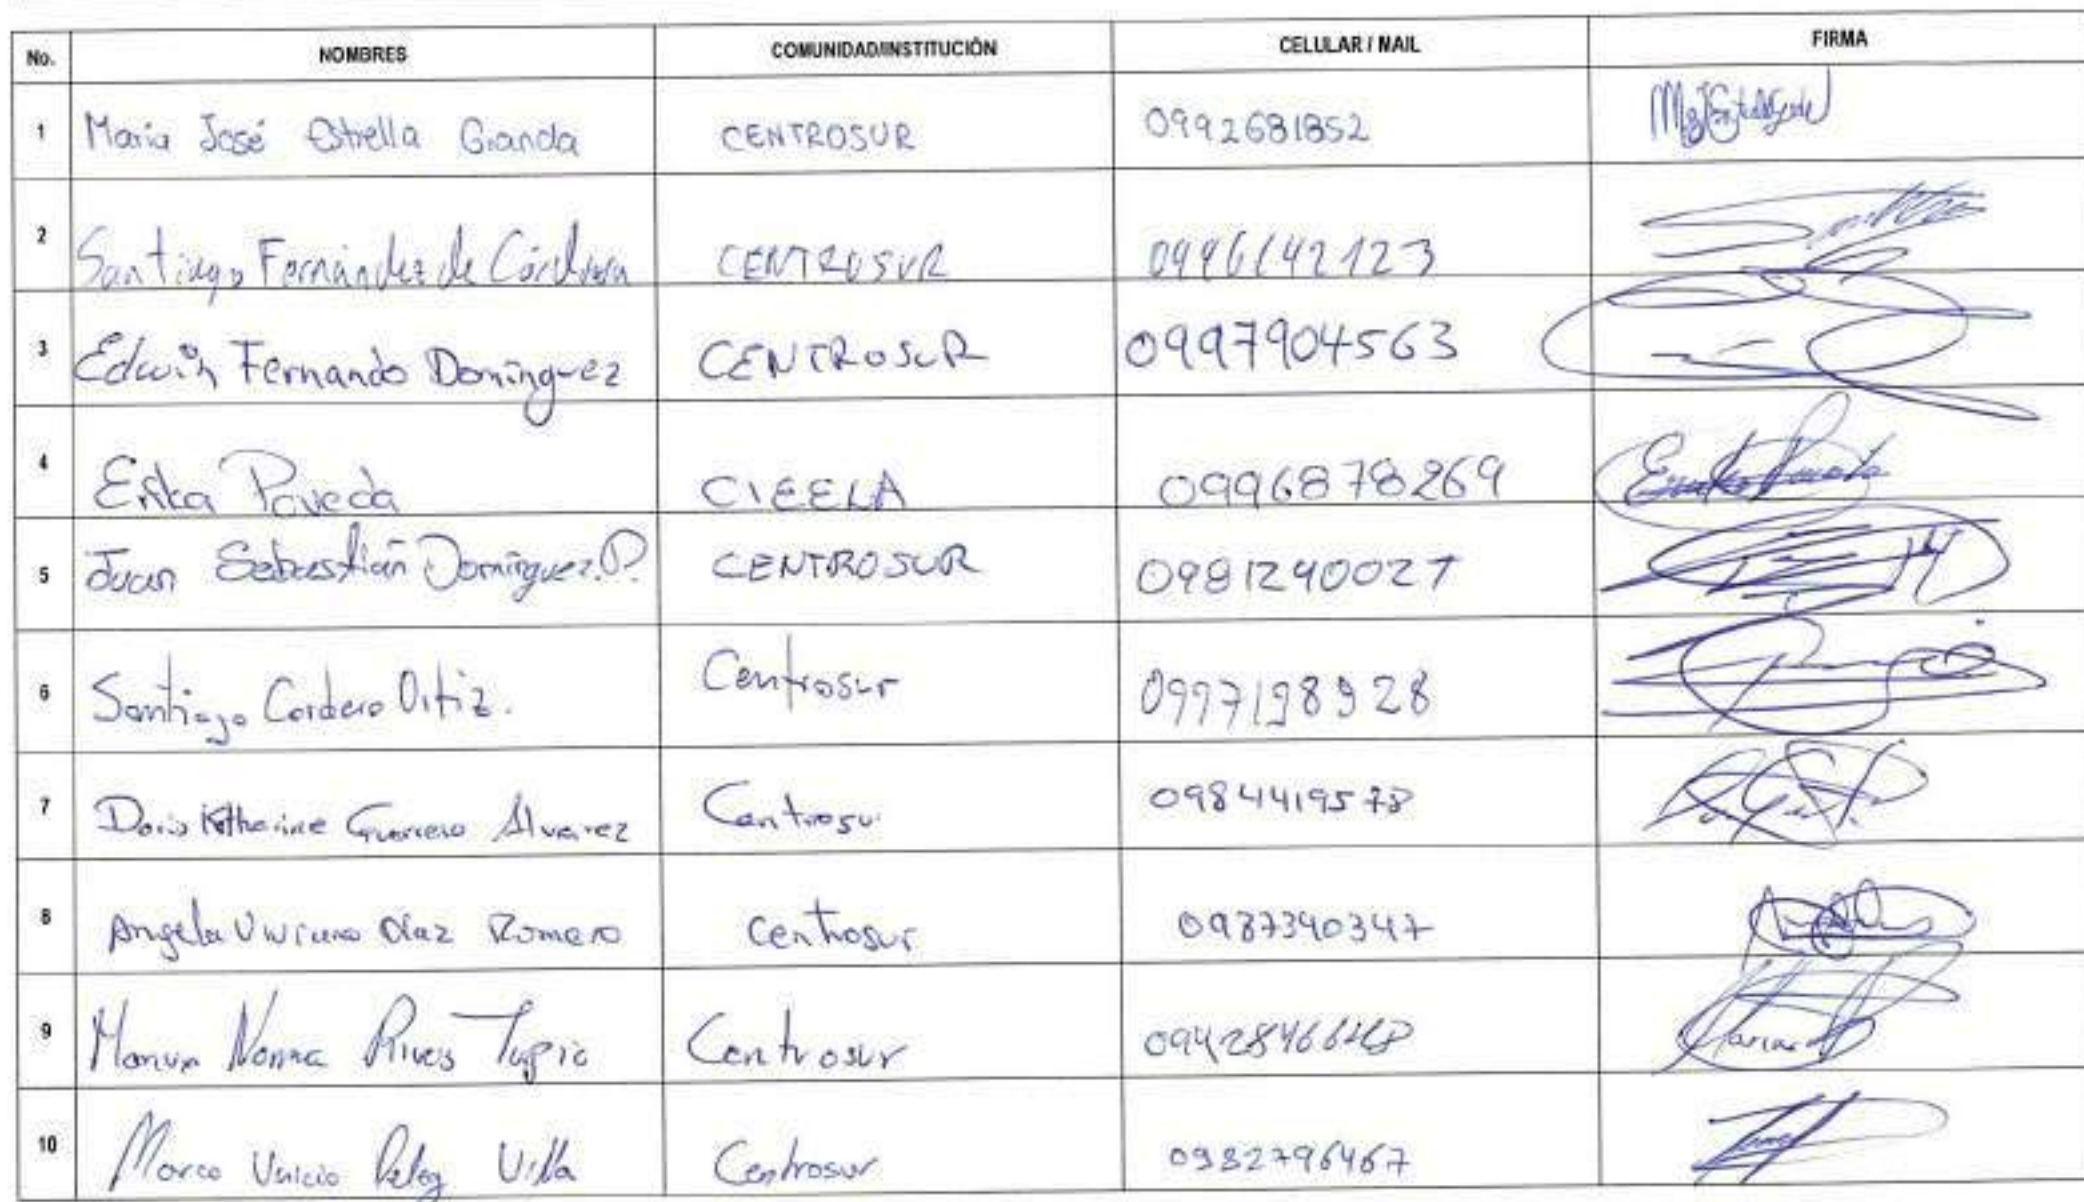 No. NOMBRES COMUNIDAD/INSTITUCIÓN CELULAR / MAIL FIRMA
1 Maria José Estrella Granda CENTROSUR 0992681852
2 Santiago Fernández de Córdova CENTROSUR 0996142123
3 Edwin Fernando Domínguez CENTROSUR 0997904563
4 Erika Poveda CIEELA 0996878269
5 Juan Sebastián Domínguez.P. CENTROSUR 0981240027
6 Santiago Cordero Ortiz. Centrosur 0997198928
7 Doris Katherine Guerrero Alvarez Centrosur 0984419578
8 Angela Viviana Díaz Romero Centrosur 0987340347
9 Norma Tapia Centrosur
10 Marco Vinicio Peláez Villa Centrosur 0982796467